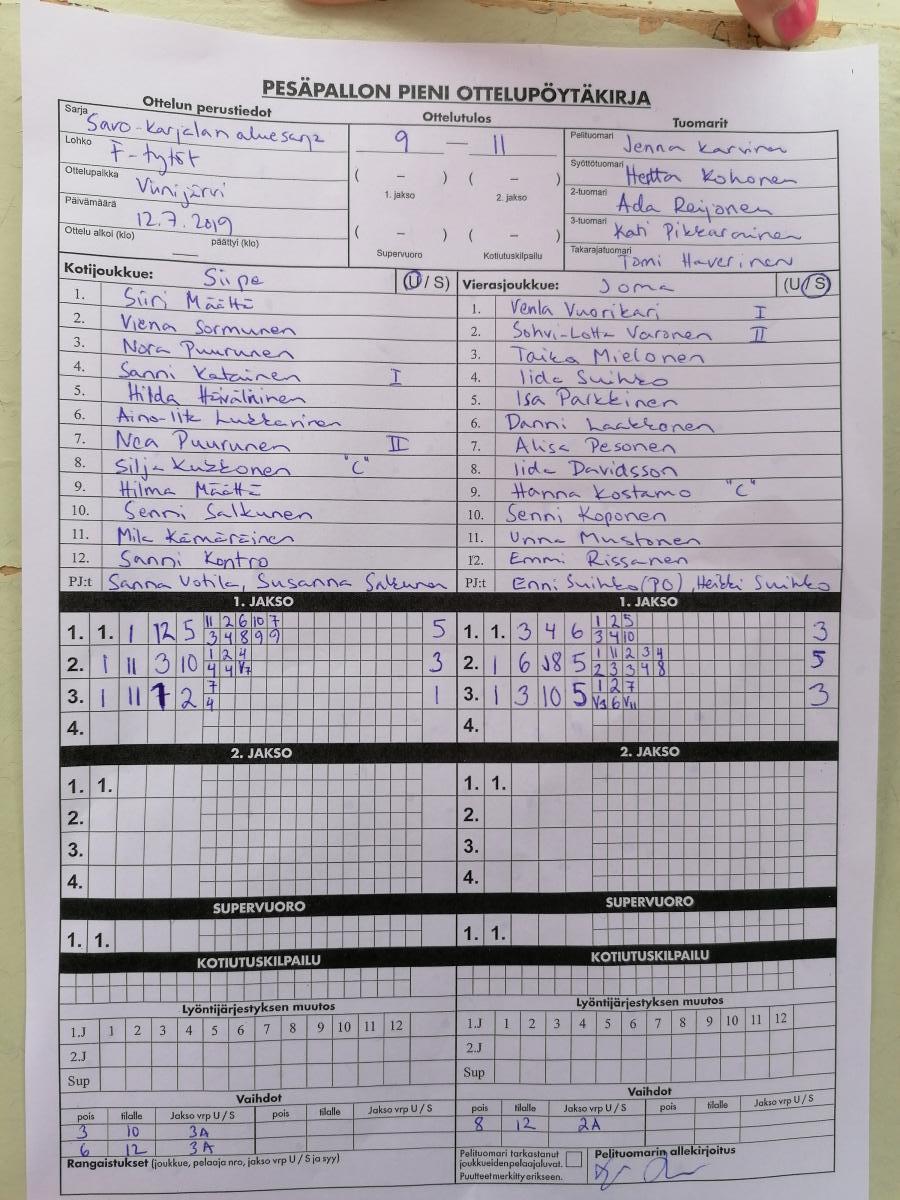 PESÄPALLON PIENI OTTELUPÖYTÄKIRJA
Ottelun perustiedot
Ottelutulos
Tuomarit
Sarja Savo-Karjalan aluesarja
Lohko F-tytöt
Ottelupaikka Viinijärvi
Päivämäärä 12.7.2019
Ottelu alkoi (klo) — päättyi (klo)
9 — 11
( – ) ( – )
1. jakso 2. jakso
( – ) ( – )
Supervuoro Kotiutuskilpailu
Pelituomari Jenna Karvinen
Syöttötuomari Hertta Kohonen
2-tuomari Ada Reijonen
3-tuomari Kati Pikkarainen
Takarajatuomari Tomi Haverinen
Kotijoukkue: Siipe (U / S)
1. Siiri Määttä
2. Viena Sormunen
3. Nora Puurunen
4. Sanni Katainen I
5. Hilda
6.
7. Nea Puurunen II
8. Silja Kukkonen "C"
9. Hilma Määttä
10. Senni Salkunen
11. Mila Kämäräinen
12. Sanni Kontro
PJ:t Sanna Votila, Susanna Salkunen
Vierasjoukkue: Joma (U / S)
1. Venla Vuorikari I
2. Sohvi-Lotta Varonen II
3. Taika Mielonen
4. Iida Suihko
5. Isa Parkkinen
6. Danni Laakkonen
7. Alisa Pesonen
8. Iida Davidsson
9. Hanna Kostamo "C"
10. Senni Koponen
11. Unna Mustonen
12. Emmi Rissanen
PJ:t Enni Suihko (PO), Heikki Suihko
1. JAKSO
1. 1. 1 12 5 11 2 6 10 7 5
3 4 8 9 9
2. 1 11 3 10 1 2 4 3
4 4 V7
3. 1 11 7 2 7 1
4
4.
1. JAKSO
1. 1. 3 4 6 1 2 5 3
3 4 10
2. 1 6 8 5 1 11 2 3 4 5
2 3 3 4 8
3. 1 3 10 5 1 2 7 3
V3 6 V11
4.
2. JAKSO
1. 1.
2.
3.
4.
2. JAKSO
1. 1.
2.
3.
4.
SUPERVUORO
1. 1.
SUPERVUORO
1. 1.
KOTIUTUSKILPAILU
KOTIUTUSKILPAILU
Lyöntijärjestyksen muutos
1.J 1 2 3 4 5 6 7 8 9 10 11 12
2.J
Sup
Lyöntijärjestyksen muutos
1.J 1 2 3 4 5 6 7 8 9 10 11 12
2.J
Sup
Vaihdot
pois tilalle Jakso vrp U / S pois tilalle Jakso vrp U / S
3 10 3A
6 12 3A
Vaihdot
pois tilalle Jakso vrp U / S pois tilalle Jakso vrp U / S
8 12 2A
Rangaistukset (joukkue, pelaaja nro, jakso vrp U / S ja syy)
Pelituomari tarkastanut
joukkueiden pelaajaluvat.
Puutteet merkitty erikseen.
Pelituomarin allekirjoitus